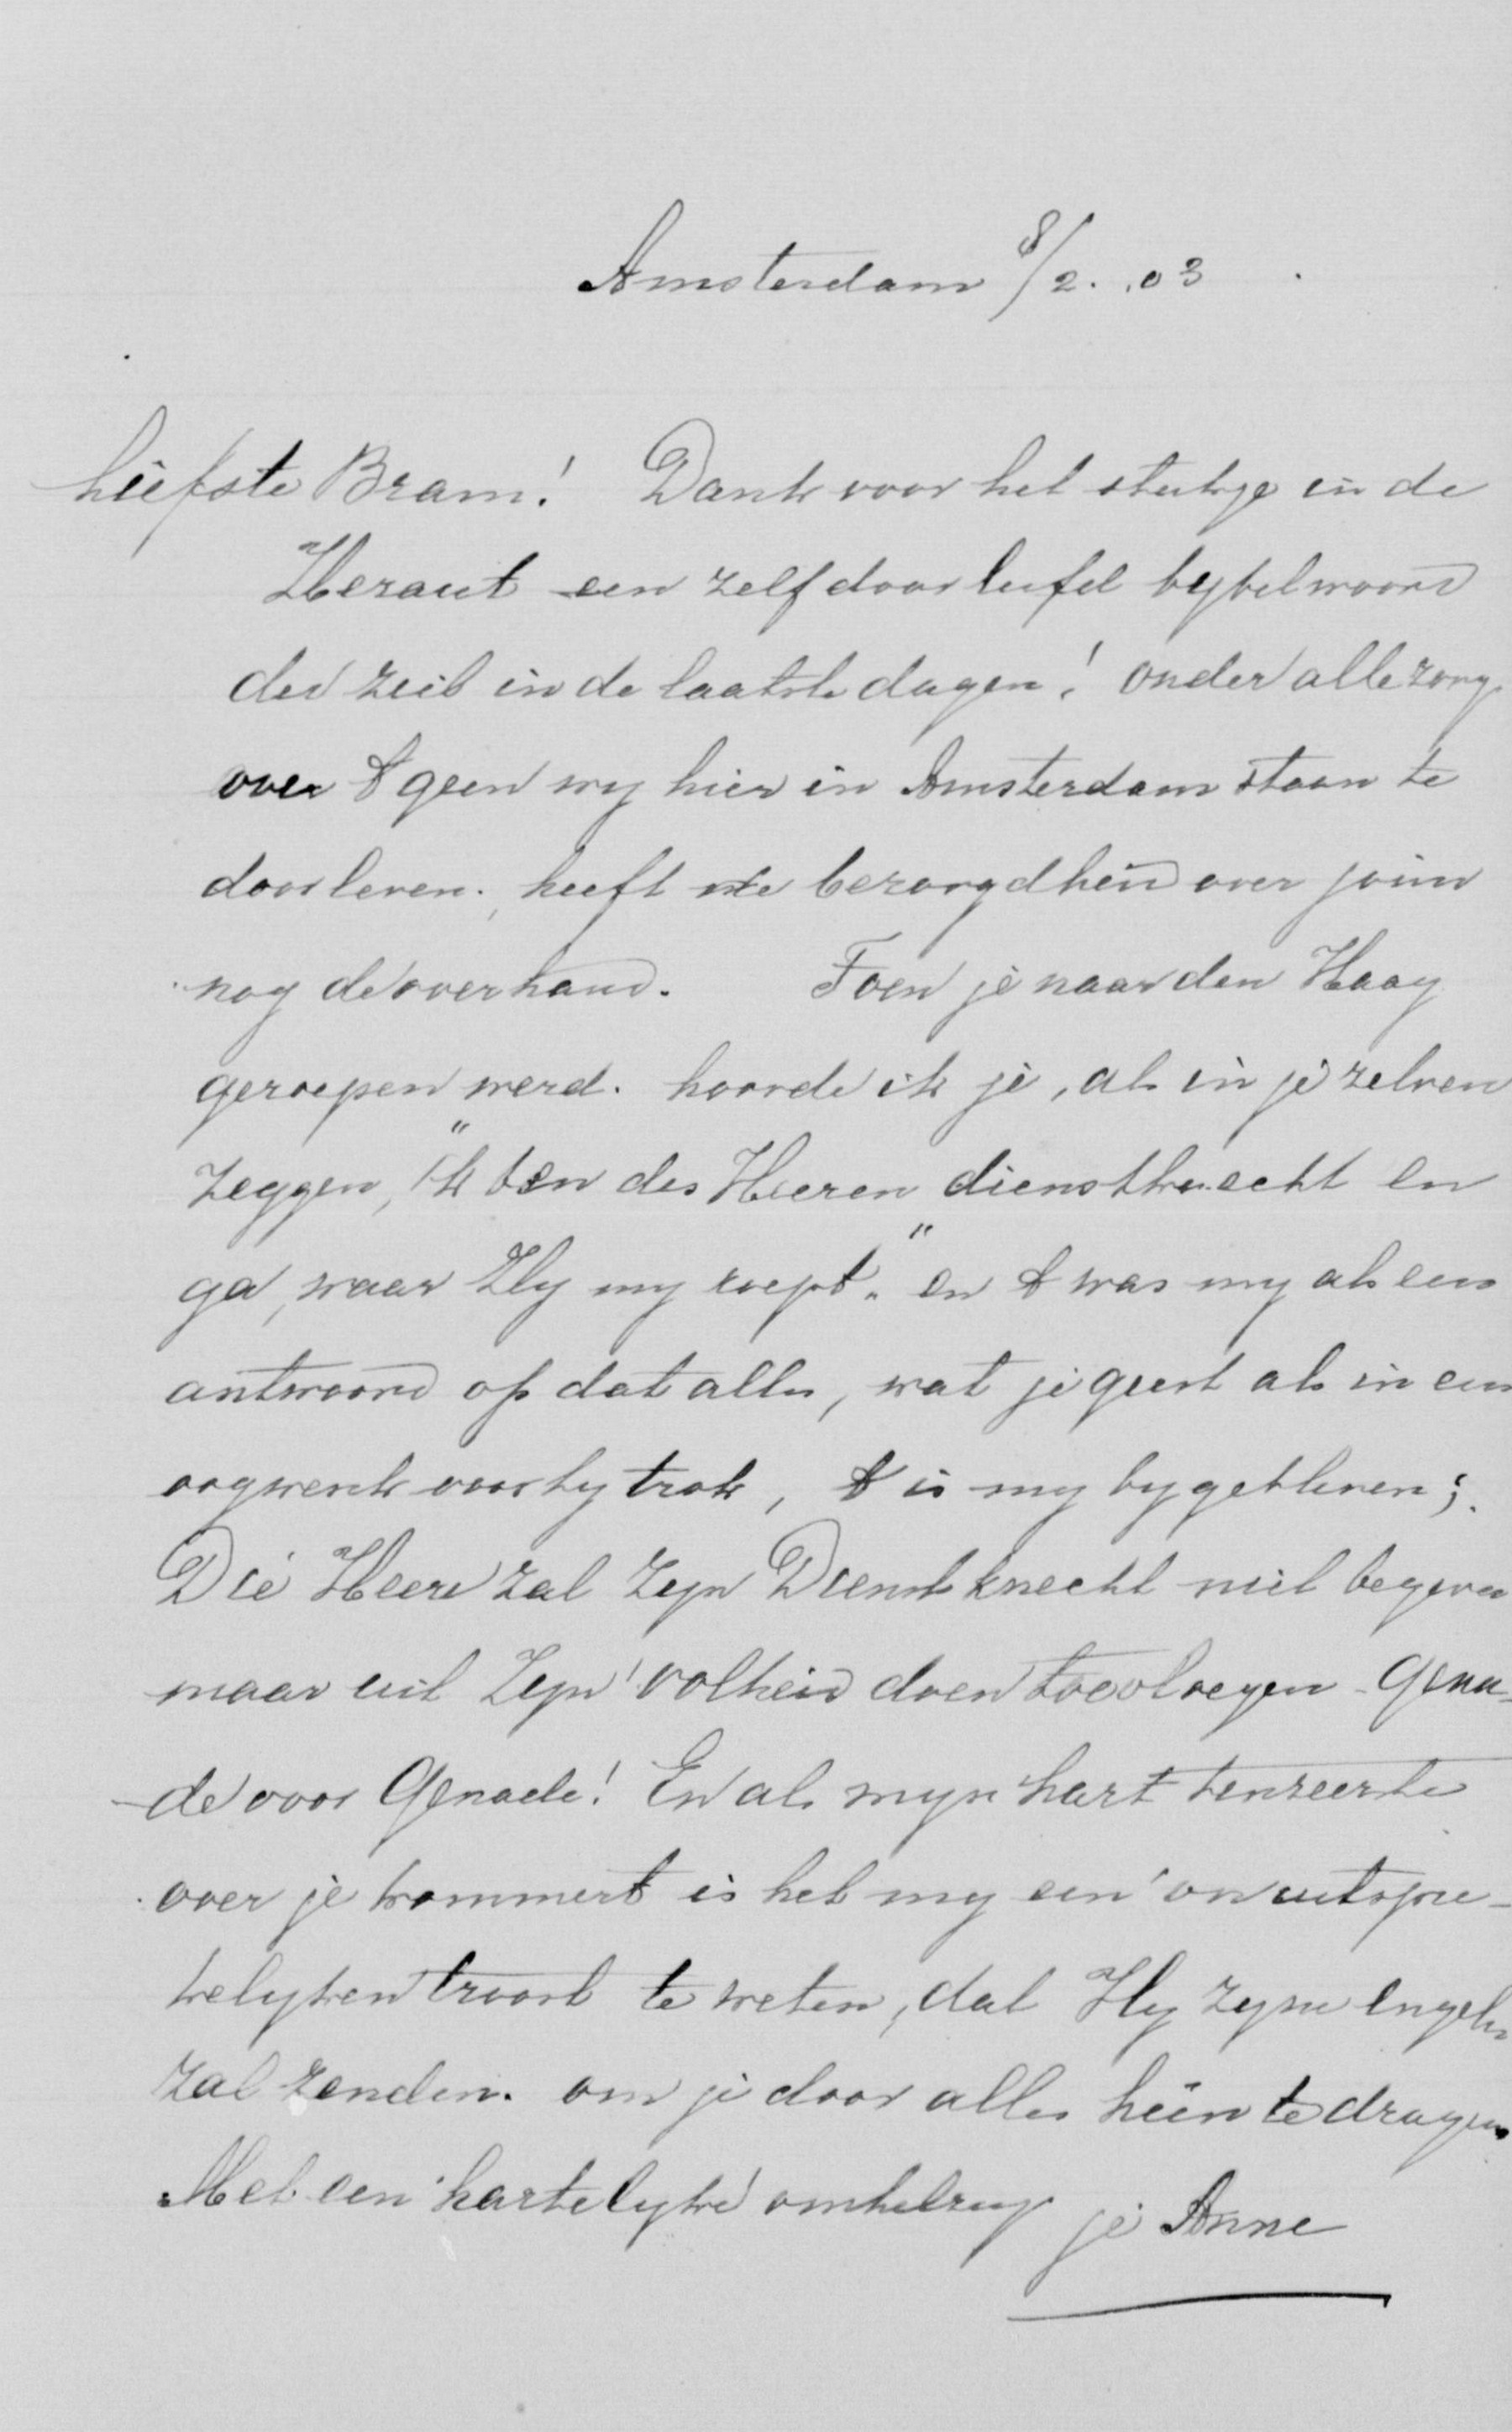 Amsterdam 8/2. .03
Liefste Bram! Dank voor het stukje in de
Heraut een zelfdoorleefd bybelwoord
der ziel in de laatste dagen! onder alle zorg
over 't geen wy hier in Amsterdam staan te
doorleven., heeft de bezorgdheid over jouw
nog de overhand. Toen je naar den Haag
geroepen werd. hoorde ik je, als in je zelven
zeggen, "ik ben des Heeren dienstknecht en
ga, waar Hy my roept." en 't was my als een
antwoord op dat alles, wat je geest als in een
oogwenk voorby trok, 't is my bygebleven;
Die Heere zal Zyn Dienstknecht niet begeven
maar uit Zyn volheid doen toevloeyen Gena-
de voor Genade! En als myn hart tenzeerste
over je kommert is het my een onuitspre-
kelyken troost te weten, dat Hy zyne engelen
zal zenden. om je door alles heen te dragen.
Met een hartelyke omhelzing je Anne